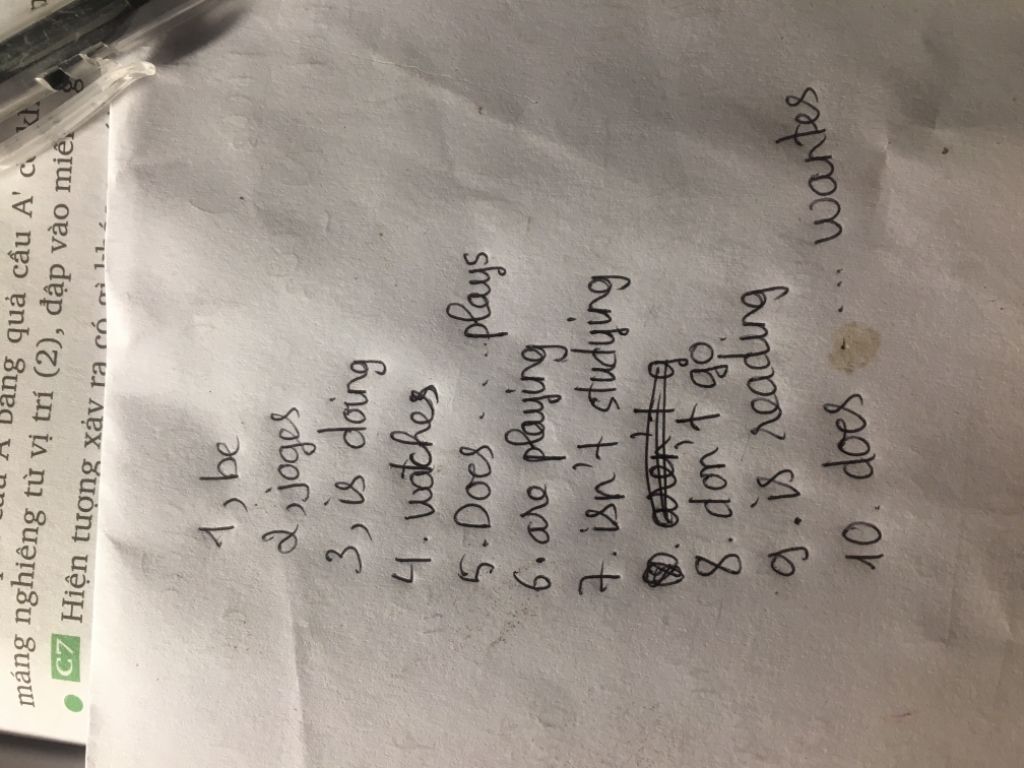 máng nghiêng từ vị trí (2), đập vào miế
C7 Hiện tượng xảy ra có
1, be
2, joges
3, is doing
4. watches
5. Does... plays
6. are playing
7. isn't studying
8. don't go
9. is reading
10. does ... wantes